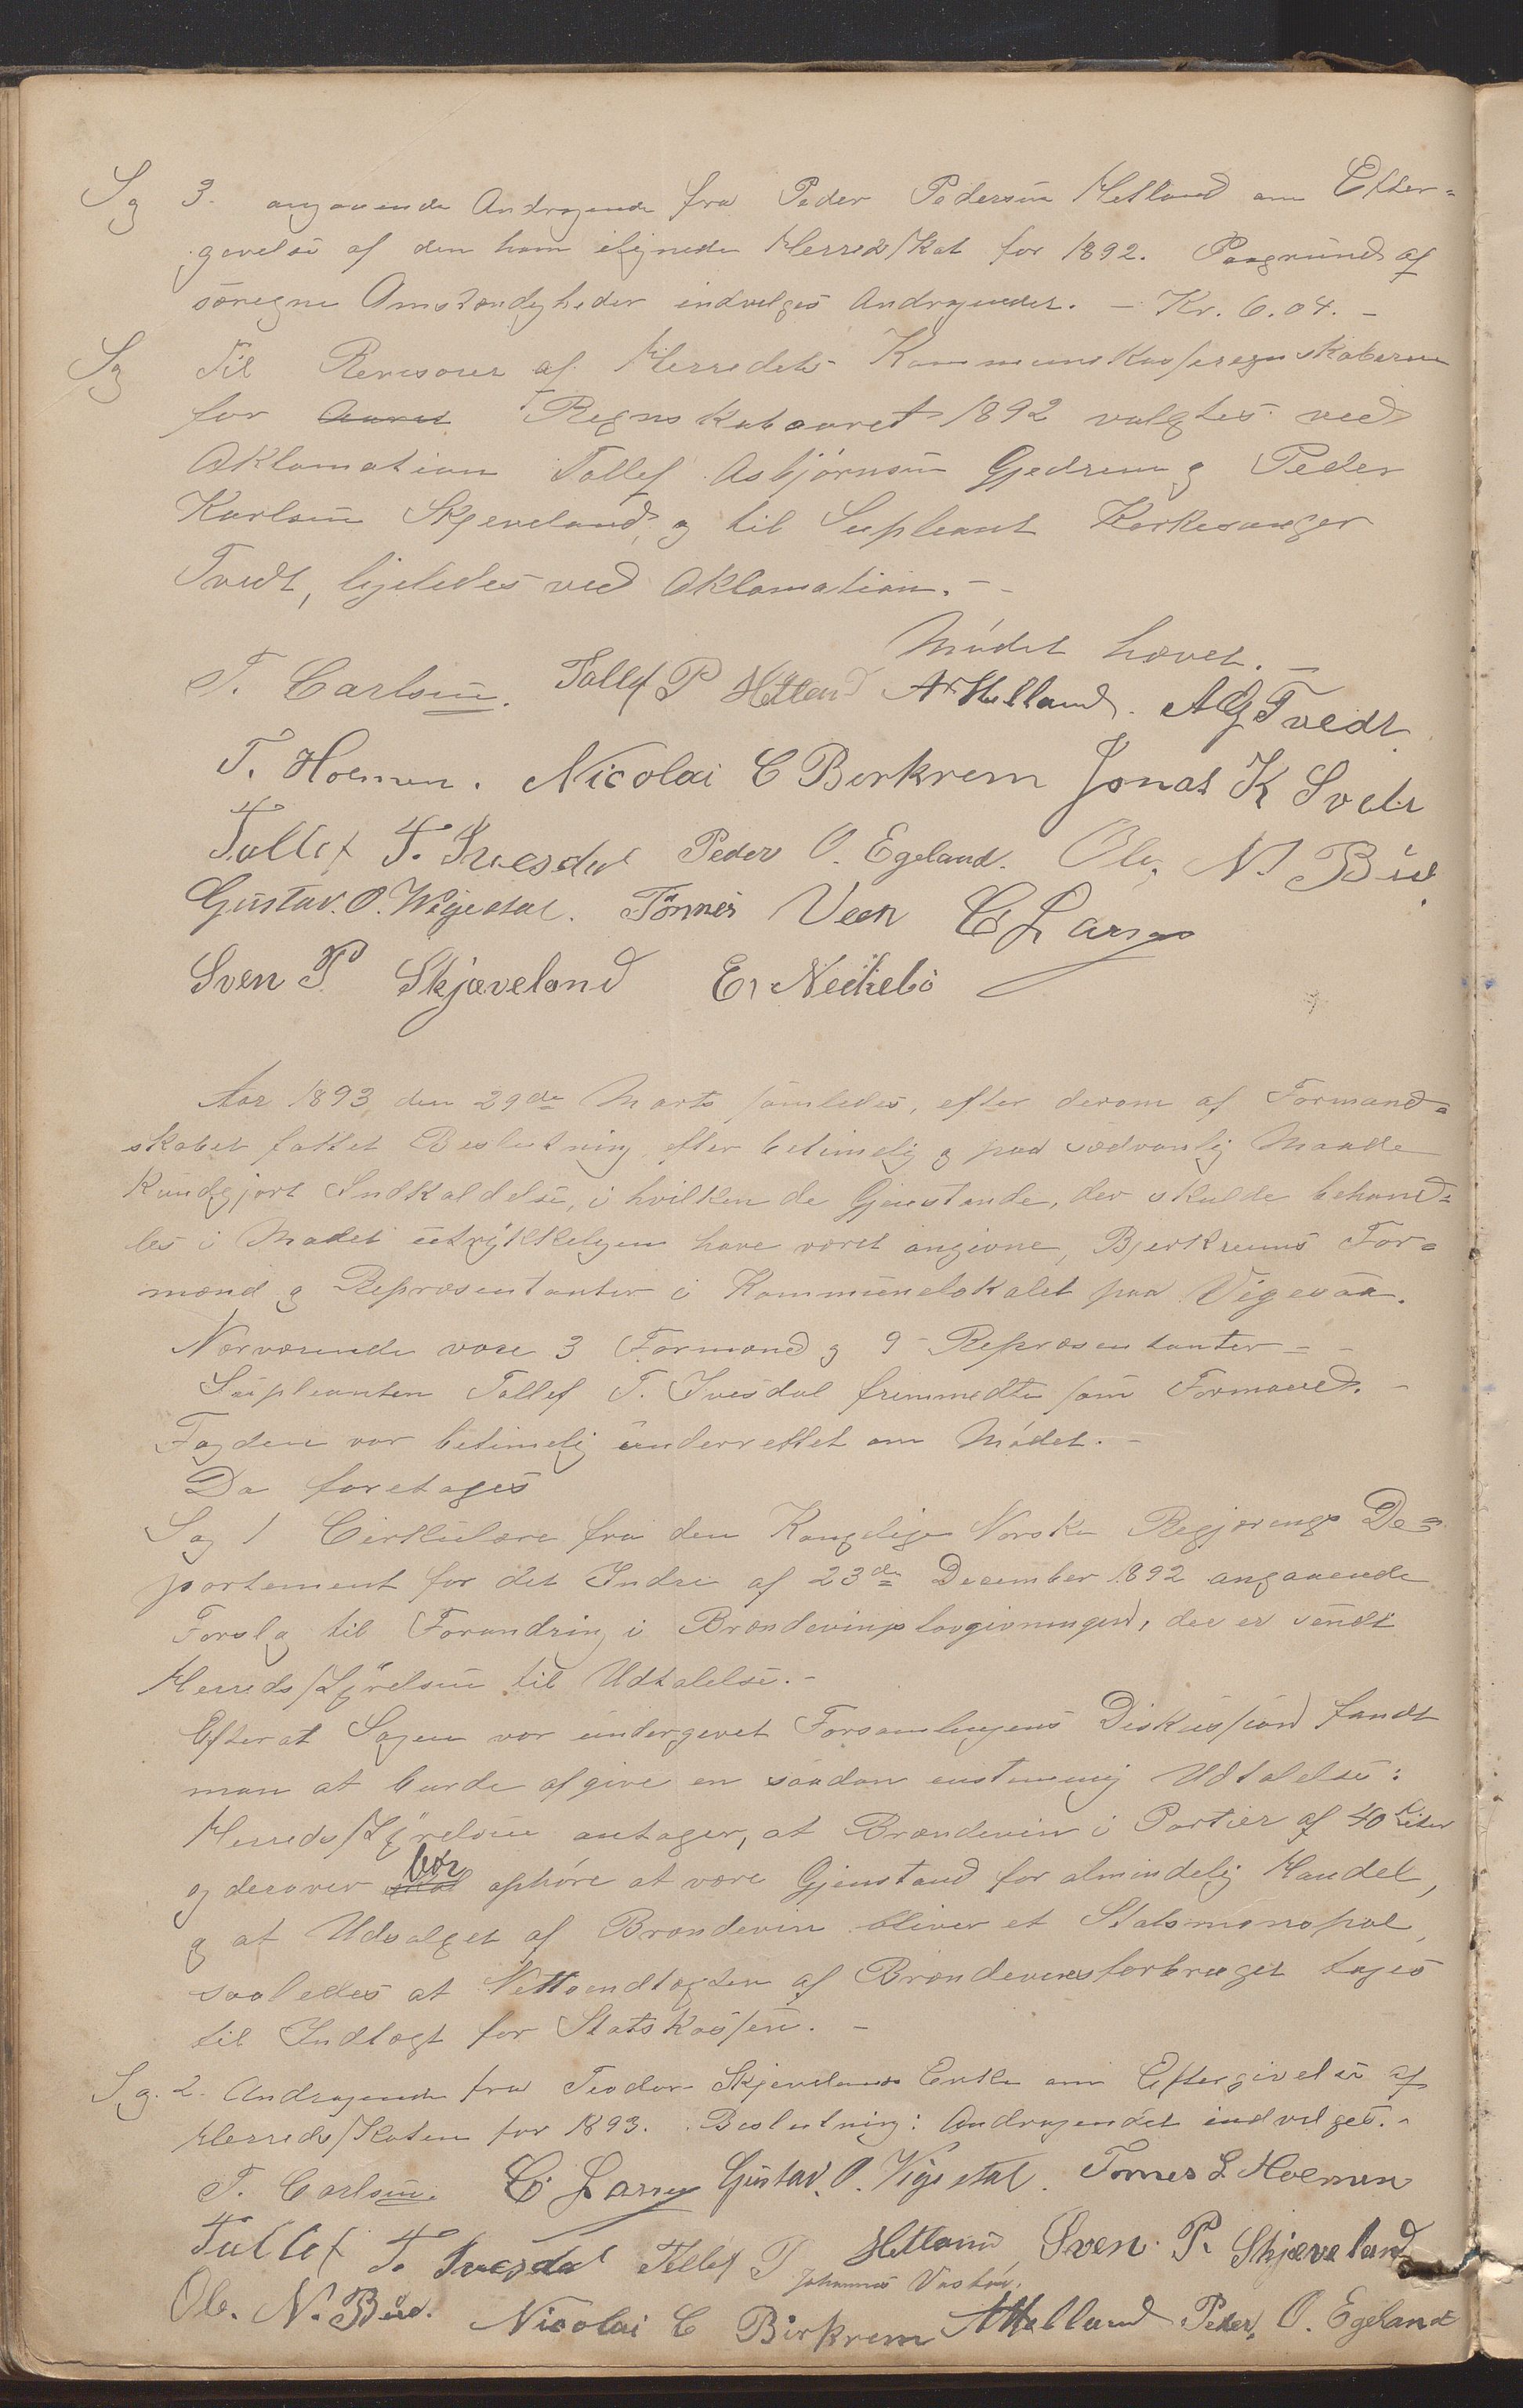 Sag 3. angaaende Andragende fra Peder Pedersen Hetland om Efter-
givelse af den ham ilignede Herredsskat for 1892. Paagrund af
særegne Omstændigheder indvilges Andragendet. — Kr. 6.04. —
Sag Til Revisorer af Herredets Kommunekasseregnskaberne
for Aaret Regnskabsaaret 1892 valgtes ved
Aklamation Tollef Asbjørnsen Gjedrem og Peder
Karlsen Skjæveland, og til Supleant Kirkesanger
Tvedt, ligeledes ved Aklamation. —
Mødet hævet. —
T. Carlsen. Tollef P Hetland A Helland. A G Tvedt
T. Holmen. Nicolai C Birkrem Jonas K Svela
Tollef T. Ivesdal Peder O. Egeland. Ole N. Bue
Gustav. O. Vigestal. Tönnes Veen C Larsen
Sven P Skjæveland E. Nedrebö
Aar 1893 den 29de Marts samledes, efter derom af Formand-
skabet fattet Beslutning efter betimelig og paa sædvanlig Maade
kundgjort Indkaldelse, i hvilken de Gjenstande, der skulde behand-
les i Mødet udtrykkeligen have været angivne, Bjerkreims For-
mænd og Repræsentanter i Kommunelokalet paa Vigesaa.
Nærværende vare 3 Formænd og 9 Repræsentanter — —
Supleanten Tollef T. Ivesdal fremmødte som Formand. —
Fogden var betimelig underrettet om Mødet. —
Da foretages
Sag 1 Cirkulære fra den Kongelige Norske Regjerings De-
partement for det Indre af 23de December 1892 angaaende
Forslag til Forandring i Brændevinslovgivningen, der er sendt
Herredsstyrelsen til Udtalelse. —
Efterat Sagen var undergivet Forsamlingens Diskussion fandt
man at burde afgive en saadan enstemmig Udtalelse:
Herredsstyrelsen antager, at Brændevin i Partier af 40 Liter
og derover skal bør ophøre at være Gjenstand for almindelig Handel,
og at Udsalget af Brændevin bliver et Statsmonopol,
saaledes at Nettoindtægten af Brændevinsforbruget tages
til Indtægt for Statskassen. —
Sag. 2. Andragende fra Teodor Skjævelands Enke om Eftergivelse af
Herredsskaten for 1893. Beslutning: Andragendet indvilges. —
T. Carlsen. C Larsen Gustav. O. Vigestal. Tönnes L Holmen
Tollef T. Ivesdal Tollef P Hetland Sven P. Skjæveland
Johannes
Ole. N. Bue. Nicolai C Birkrem A Helland Peder O. Egeland